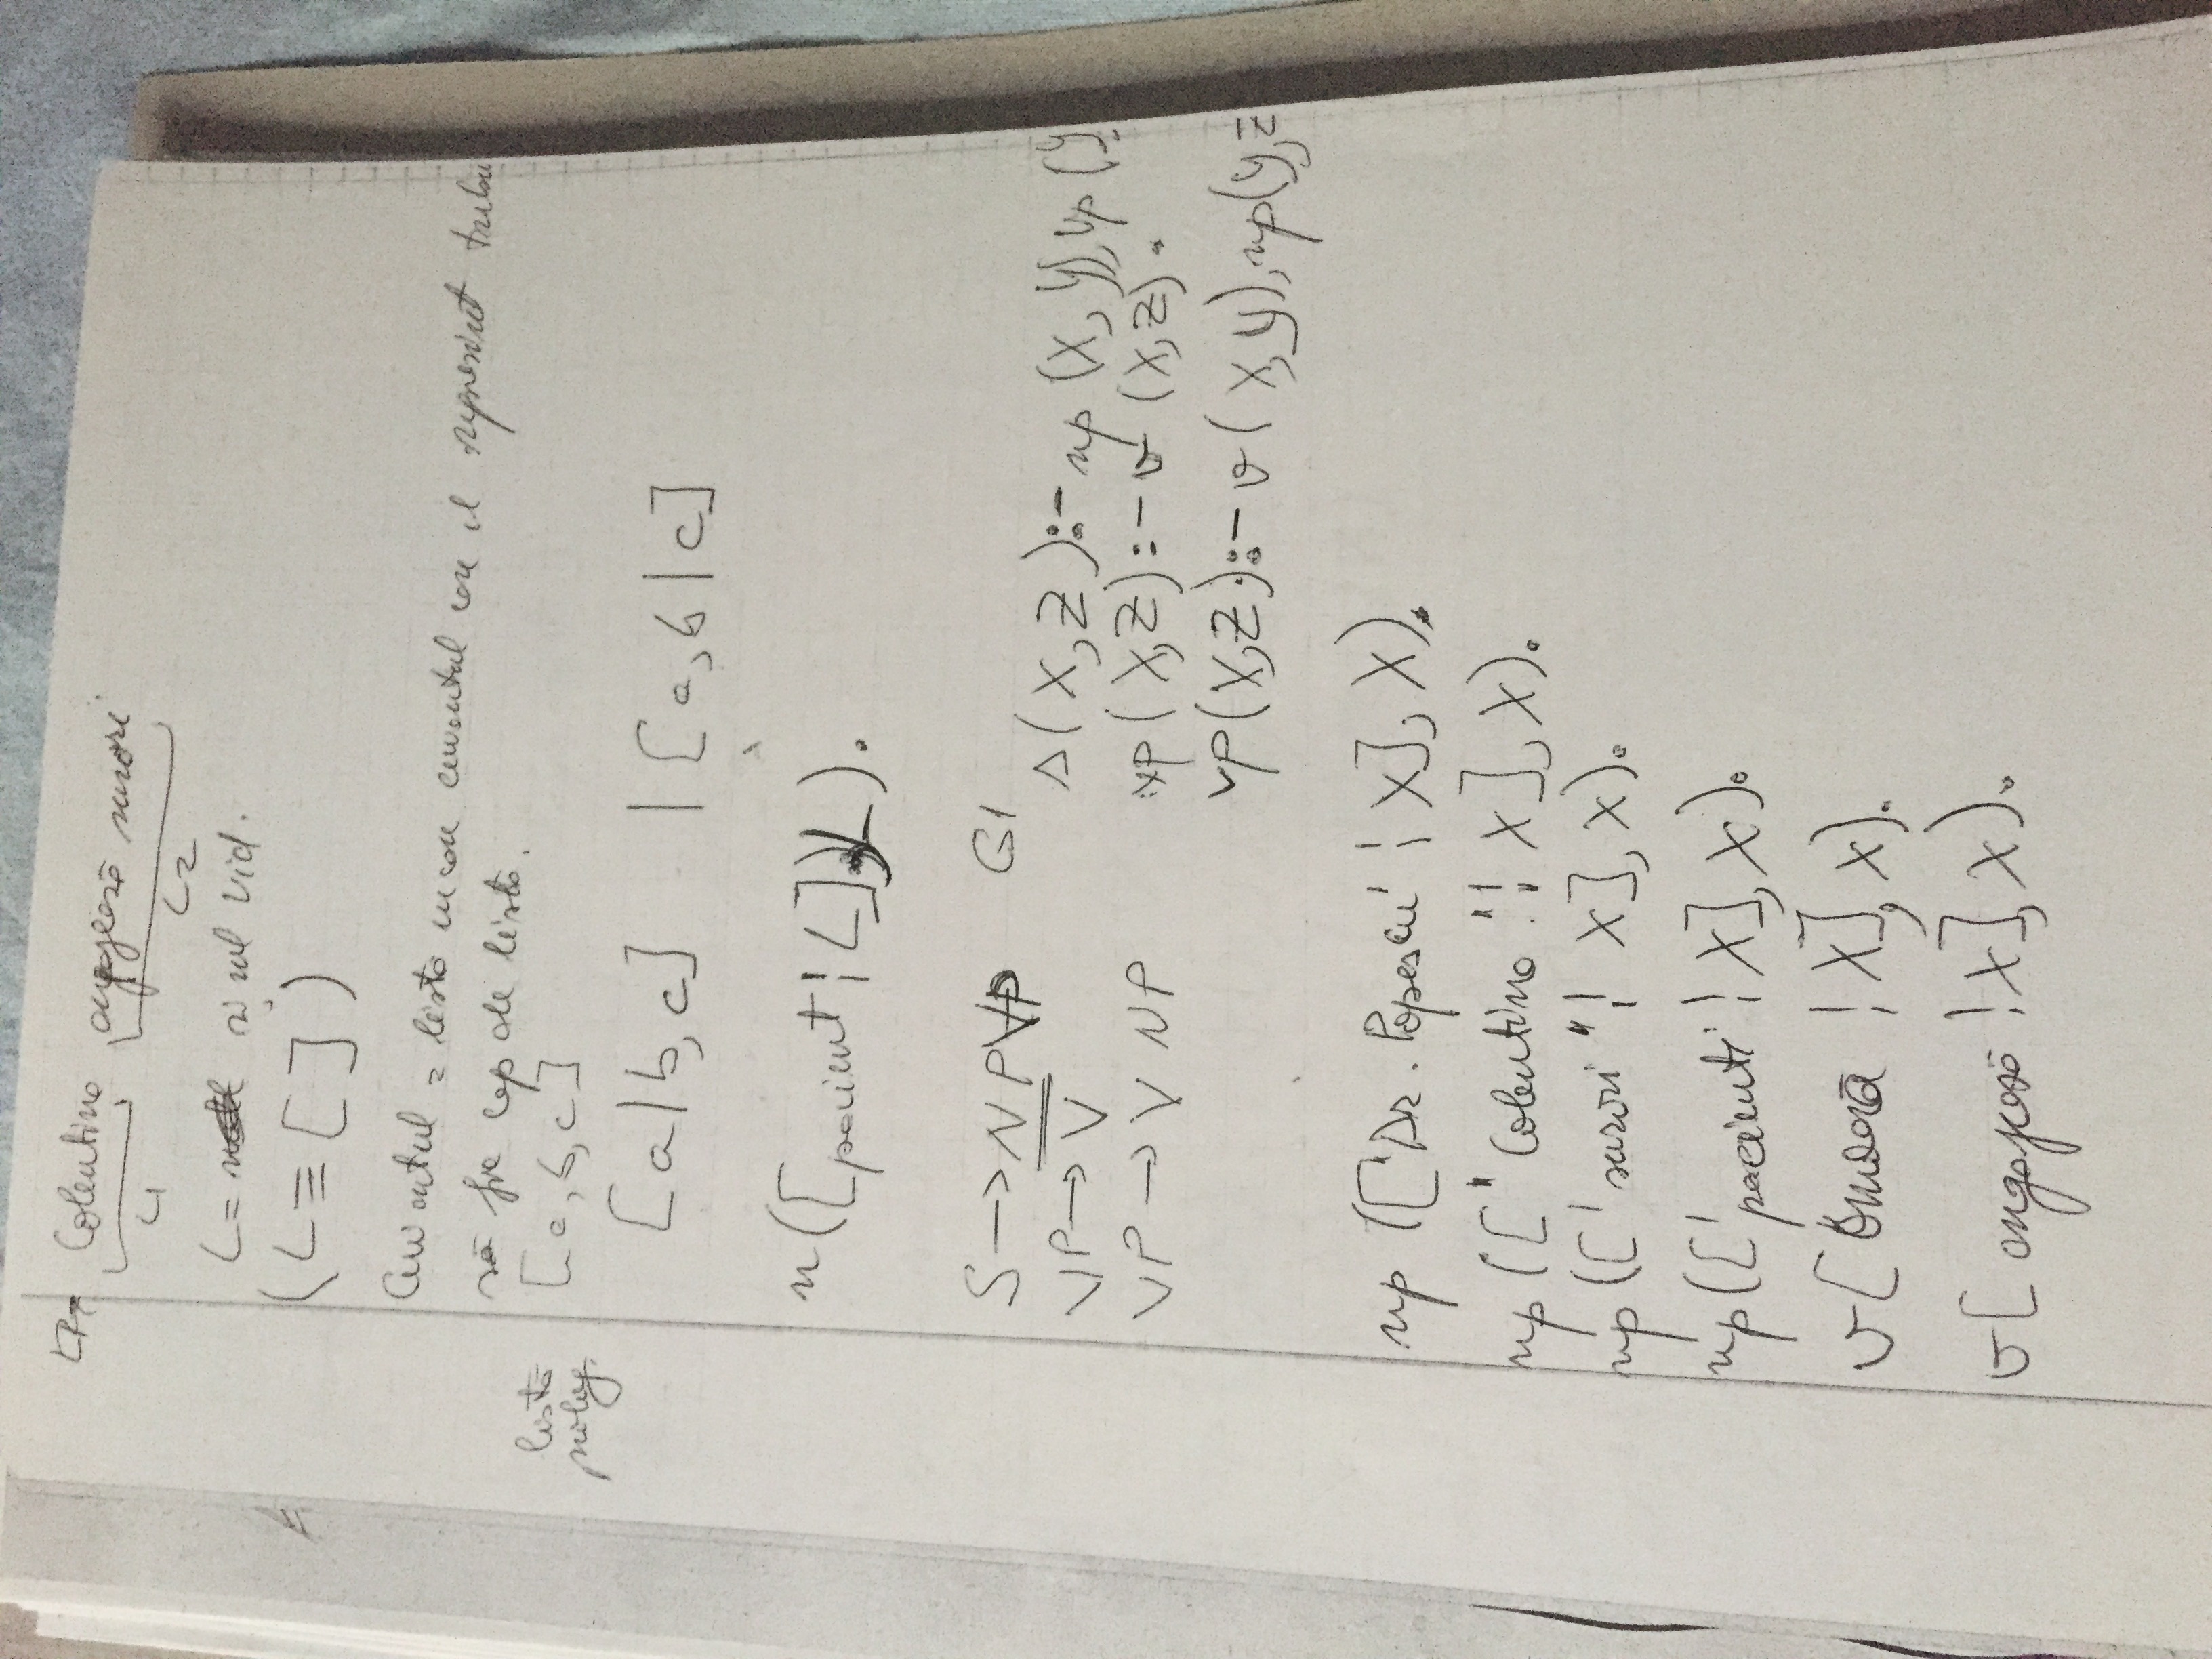 L = Colentina angajează surori
L1 L2
L = șirul vid.
(L ≡ [ ])
Cuvântul = listă în care cuvântul care îl reprezint trebuie
să fie cap de listă.
listă prolog [a, b, c]
[a | b, c] | [a, b | c]
n([pacient ¦ L], L).
S → NP VP G1
s(X, Z) :- np (X, Y), vp (Y
VP → V
vp(X, Z) :- v (X, Z).
VP → V NP
vp(X, Z) :- v(X, Y), np(Y, Z
np (['Dr. Popescu' ¦ X], X).
np (["Colentina" ¦ X], X).
np (['surori" ¦ X], X).
np (['pacienti' ¦ X], X).
v[ omoară ¦ X], X).
v[ angajează ¦ X], X).